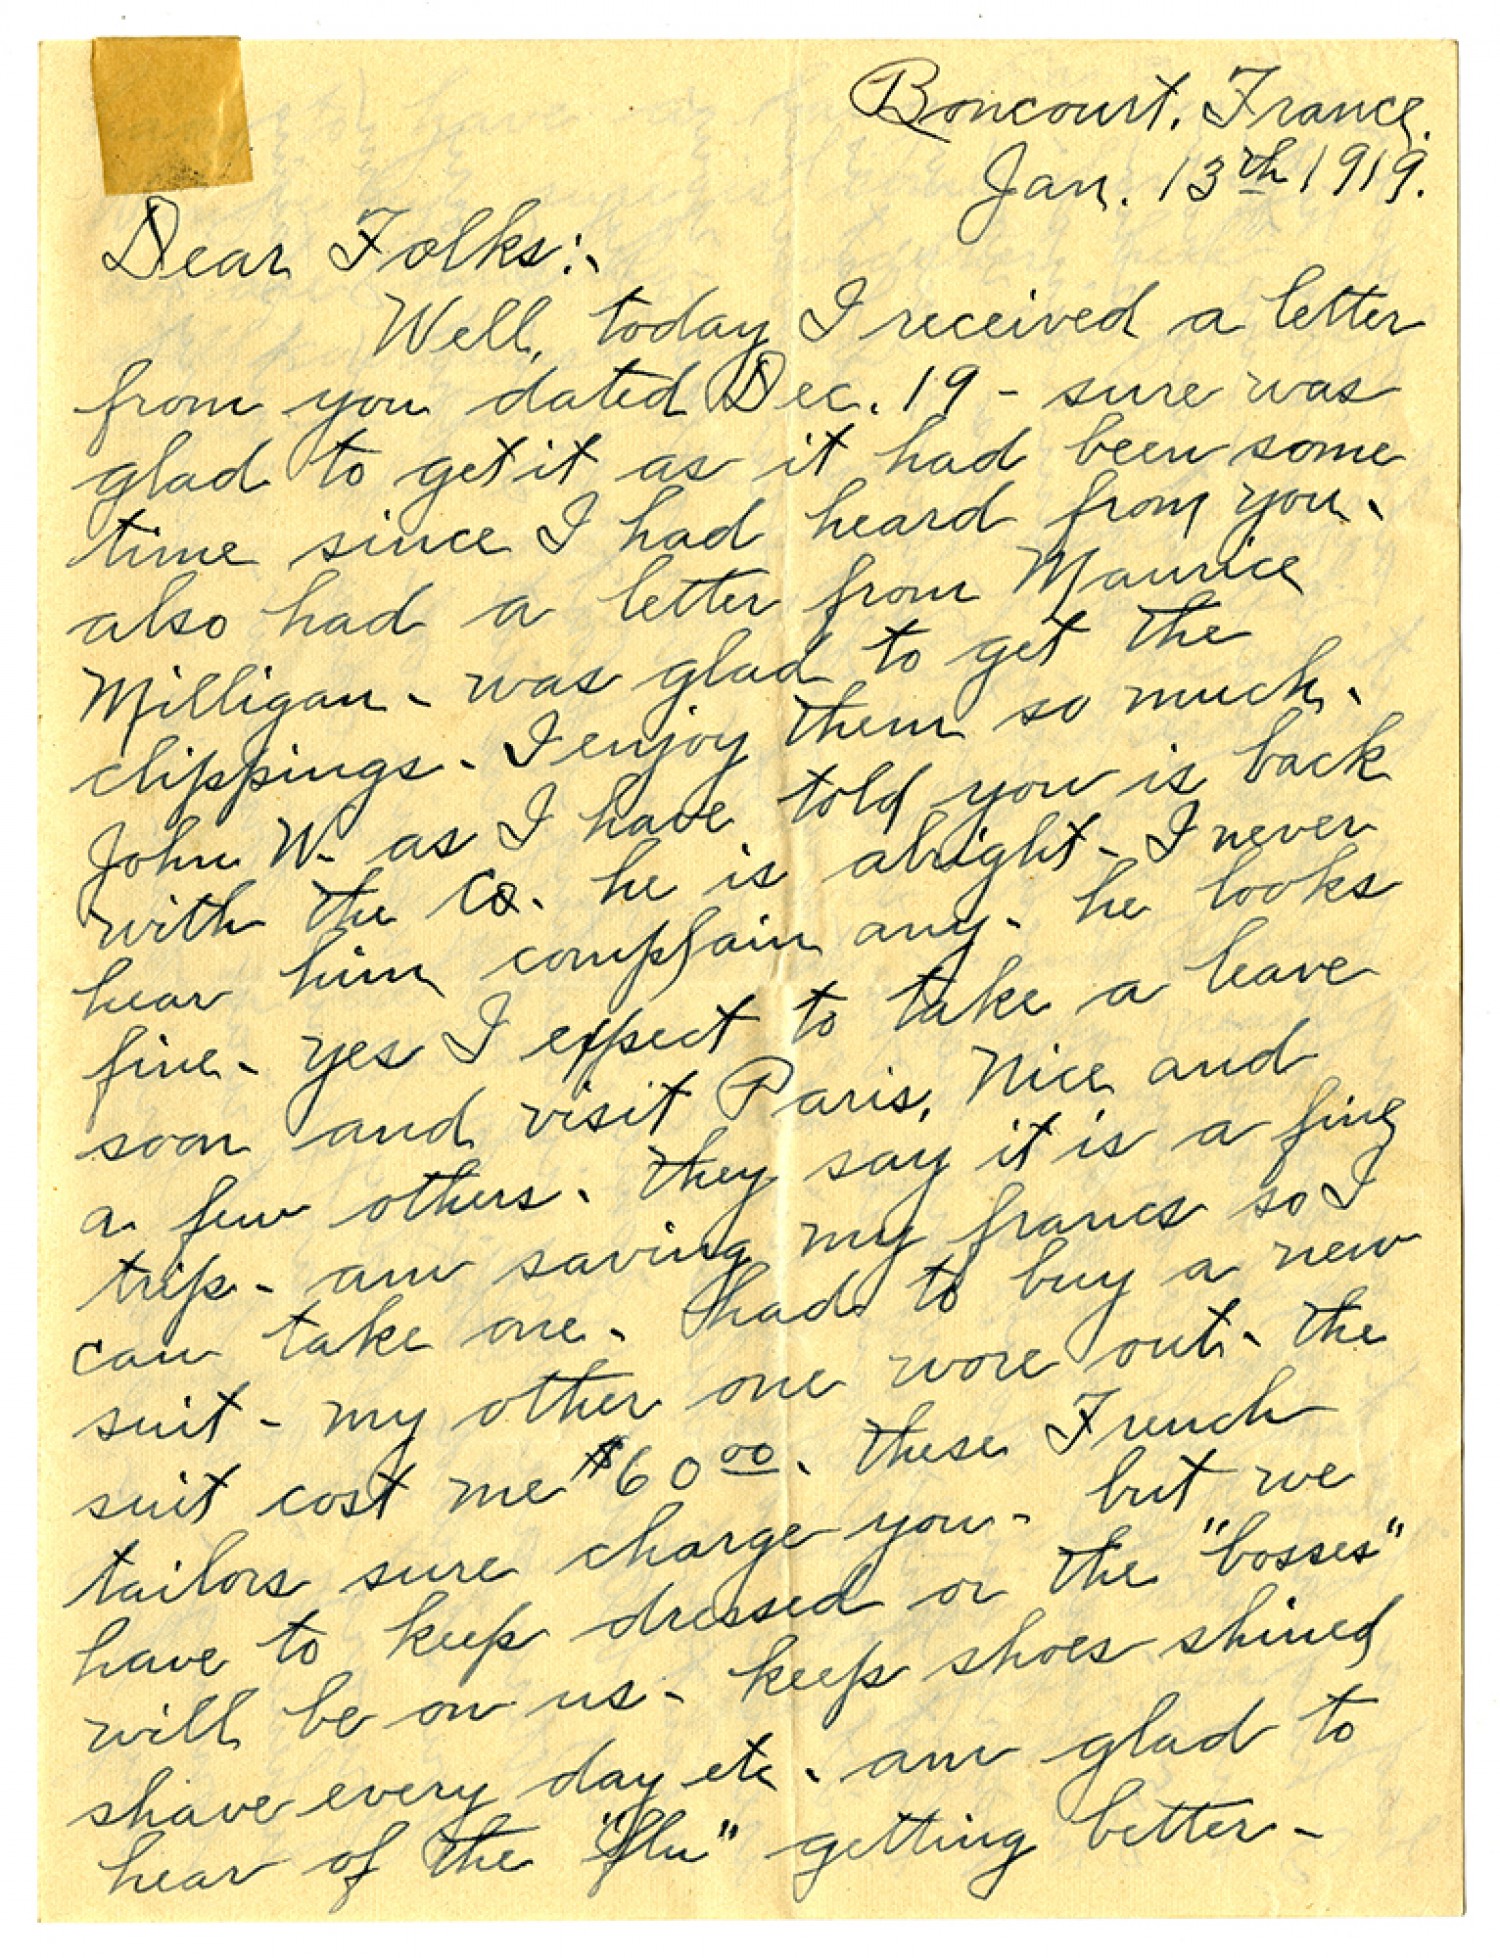 Boncourt. France.
Jan. 13th 1919.
Dear Folks:-
Well, today I received a letter
from you dated Dec. 19 - sure was
glad to get it as it had been some
time since I had heard from you.
also had a letter from Maurice
Milligan - was glad to get the
clippings - I enjoy them so much.
John W. as I have told you is back
with the Co. he is alright - I never
hear him complain any - he looks
fine - yes I expect to take a leave
soon and visit Paris, Nice and
a few others. They say it is a fine
trip - am saving my francs so I
can take one. Had to buy a new
suit - my other one wore out - the
suit cost me $60 00. these French
tailors sure charge you - but we
have to keep dressed or the "bosses"
will be on us - keep shoes shined
shave every day etc. am glad to
hear of the "flu" getting better -